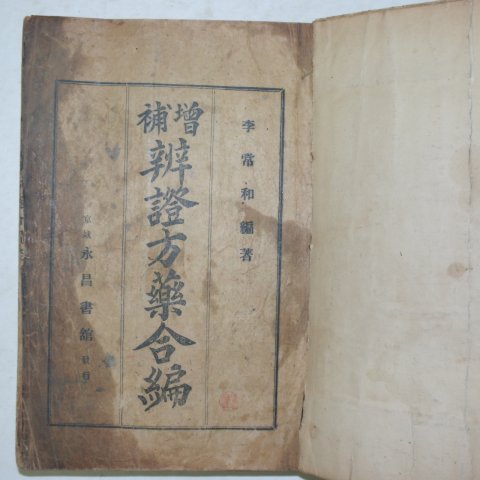 李常和編著
增補
辨證方藥合編
京城 永昌書館 發行